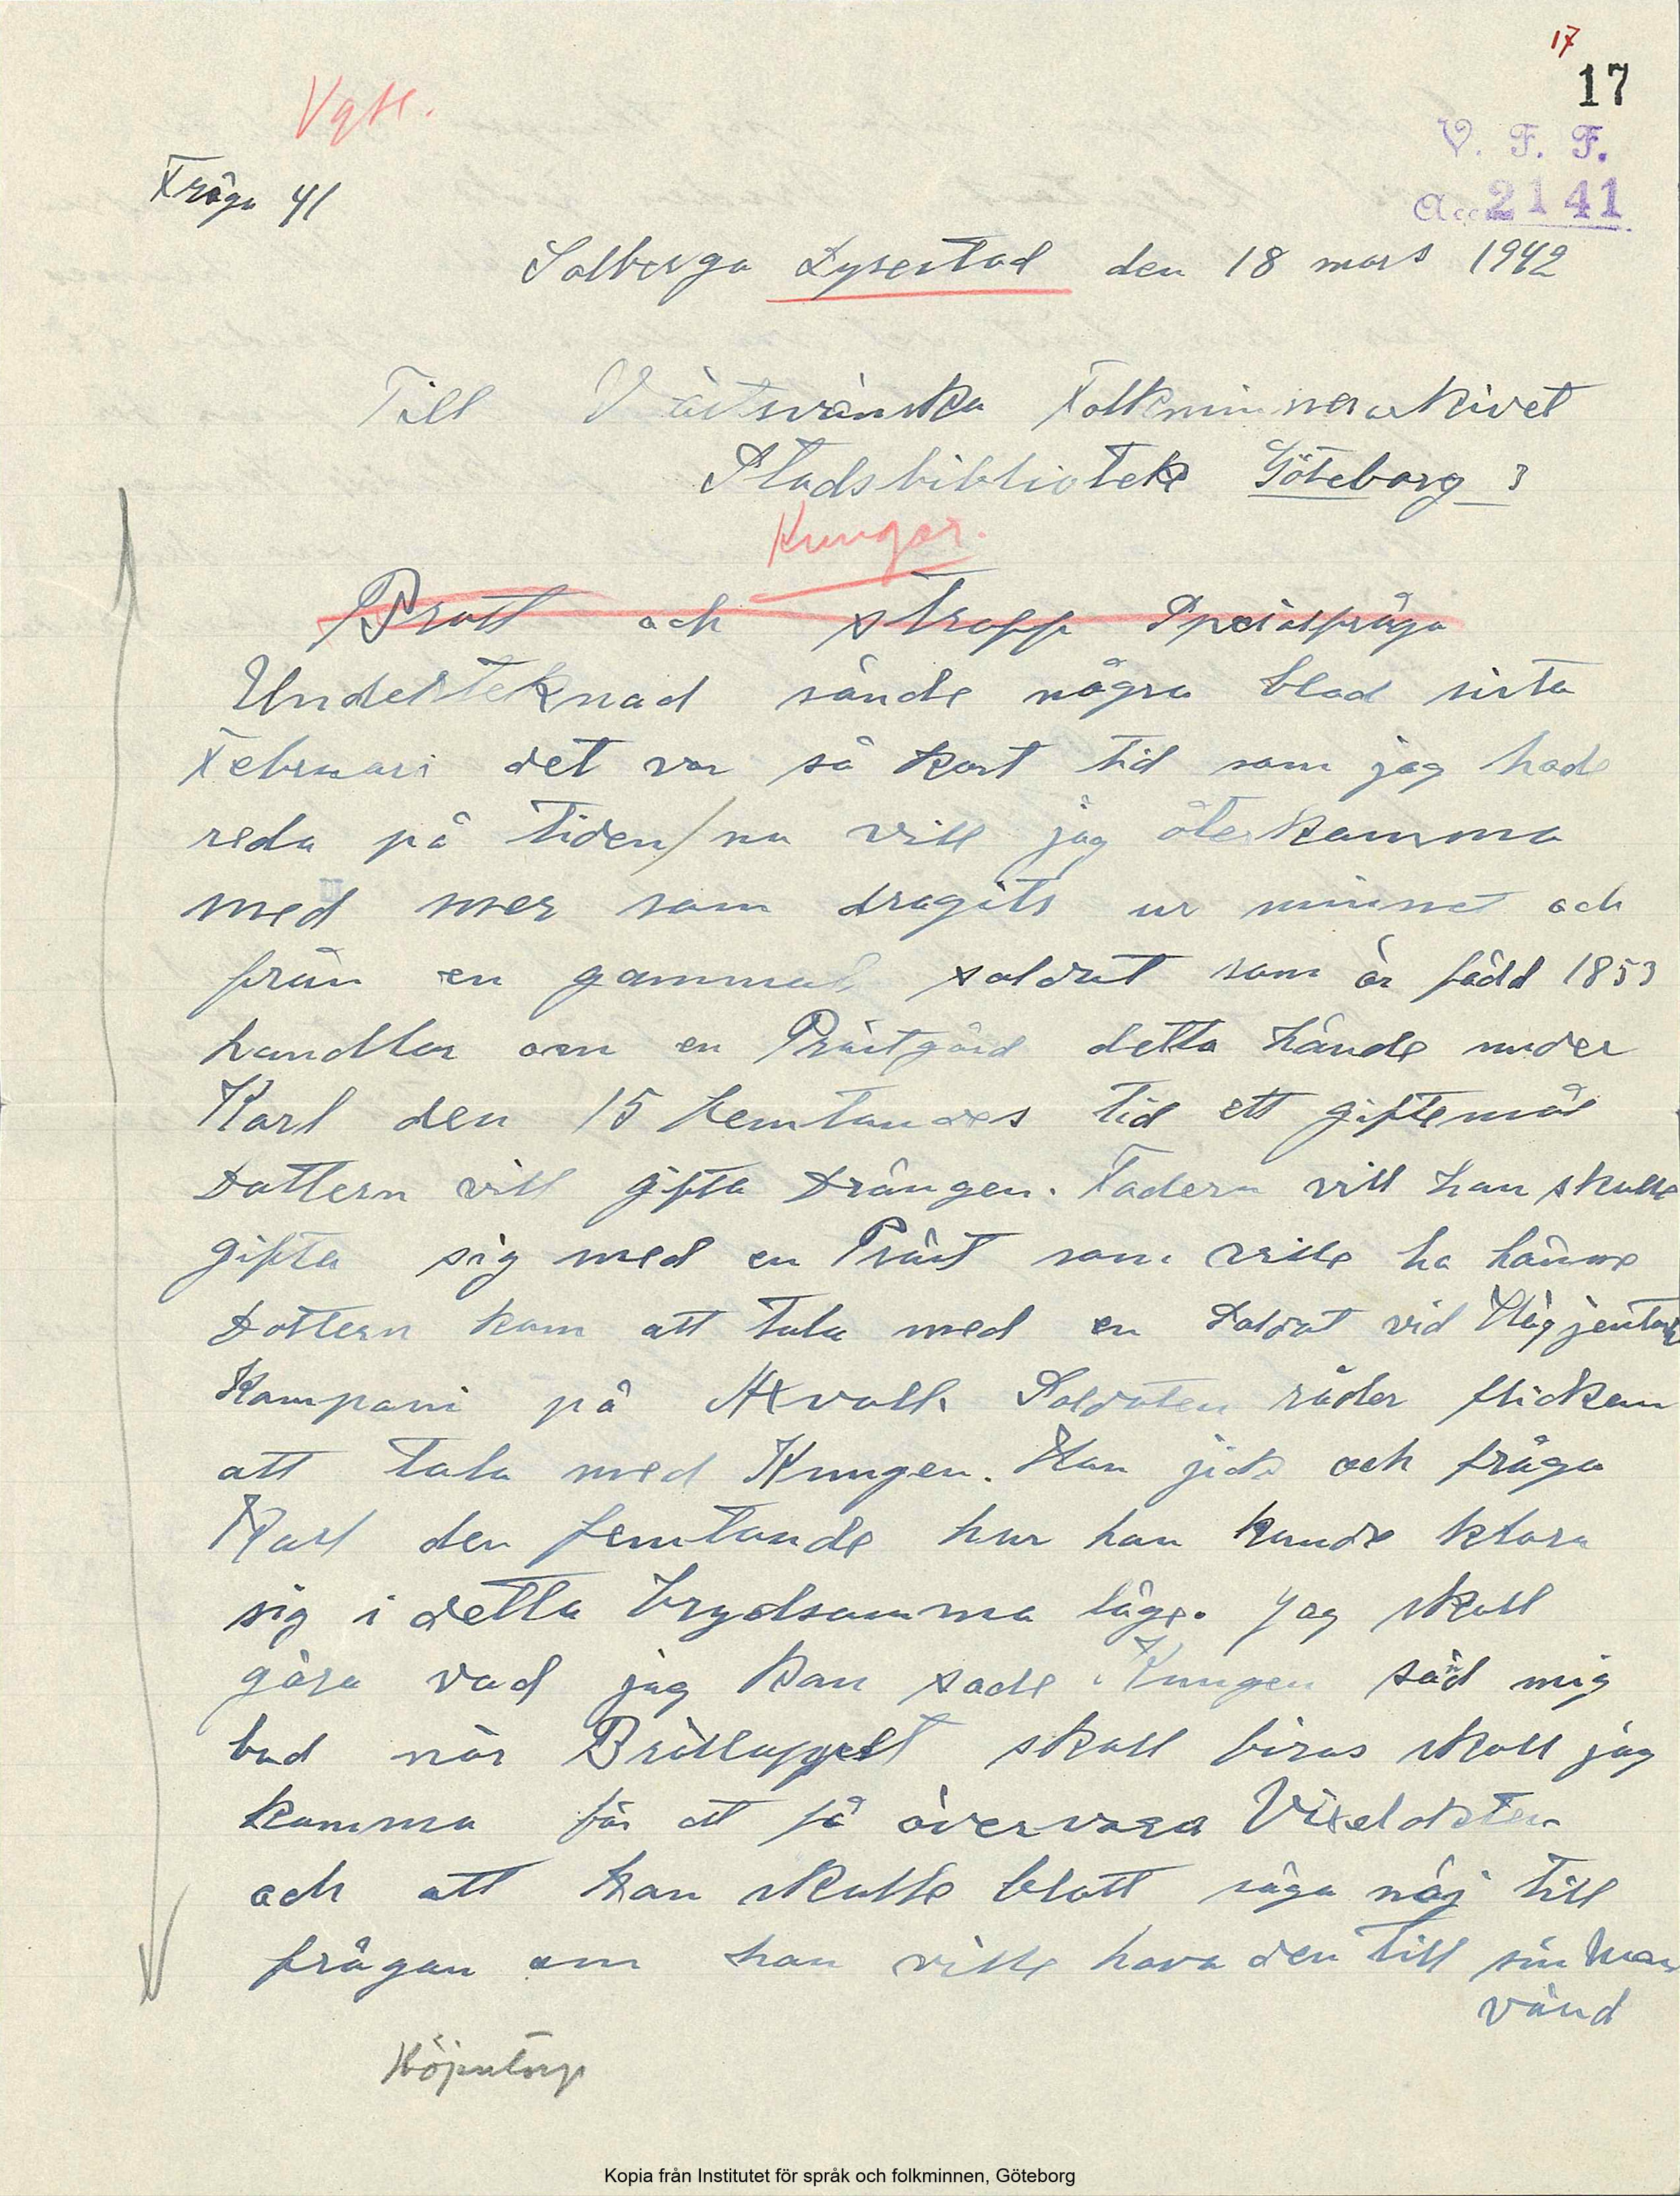 17
17
Vgtl.
V. F. F.
Fråga 41
Acc. 2141
Solberga Lyrestad den 18 mars 1942
Till Västsvänska Folkminnerarkivet
Stadsbiblioteke Göteborg 3
Kungar.
Brott och stropp
Understeknad sände några blad sista
Februari det var så kort tid som jag hade
reda på tiden/nu vill jag återkomma
med mer som dragits ur minnet och
från en gammal soldat som är född 1853
handlar om en Prästgård detta hände under
Karl den 15 femtandes tid ett giftemål
Dottern vill gifta Drängen. Fadern vill han skulle
gifta sig med en Präst som ville ha hänne
Dottern kom att tala med en Soldat vid
Kompani på Axvall. Soldaten råder flickan
att tala med Kungen. Han jick och fråga
Karl den femtande hur han kunde klara
sig i detta brydsamma läge. Jag skall
göra vad jag kan sade Kungen sänd mig
bud när Brölluppet skall firas skall jag
komma för att få övervara Vixelakten
och att han skulle blott säga näj till
frågan om han ville hava den till sin
vänd
Höjentorp
Kopia från Institutet för språk och folkminnen, Göteborg